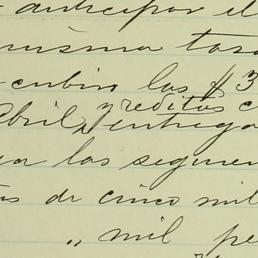 anticipar el
misma tasa
cubrir las $3
y reditos c
Abril, entrega
ya las segun
de cinco mil
" mil pe